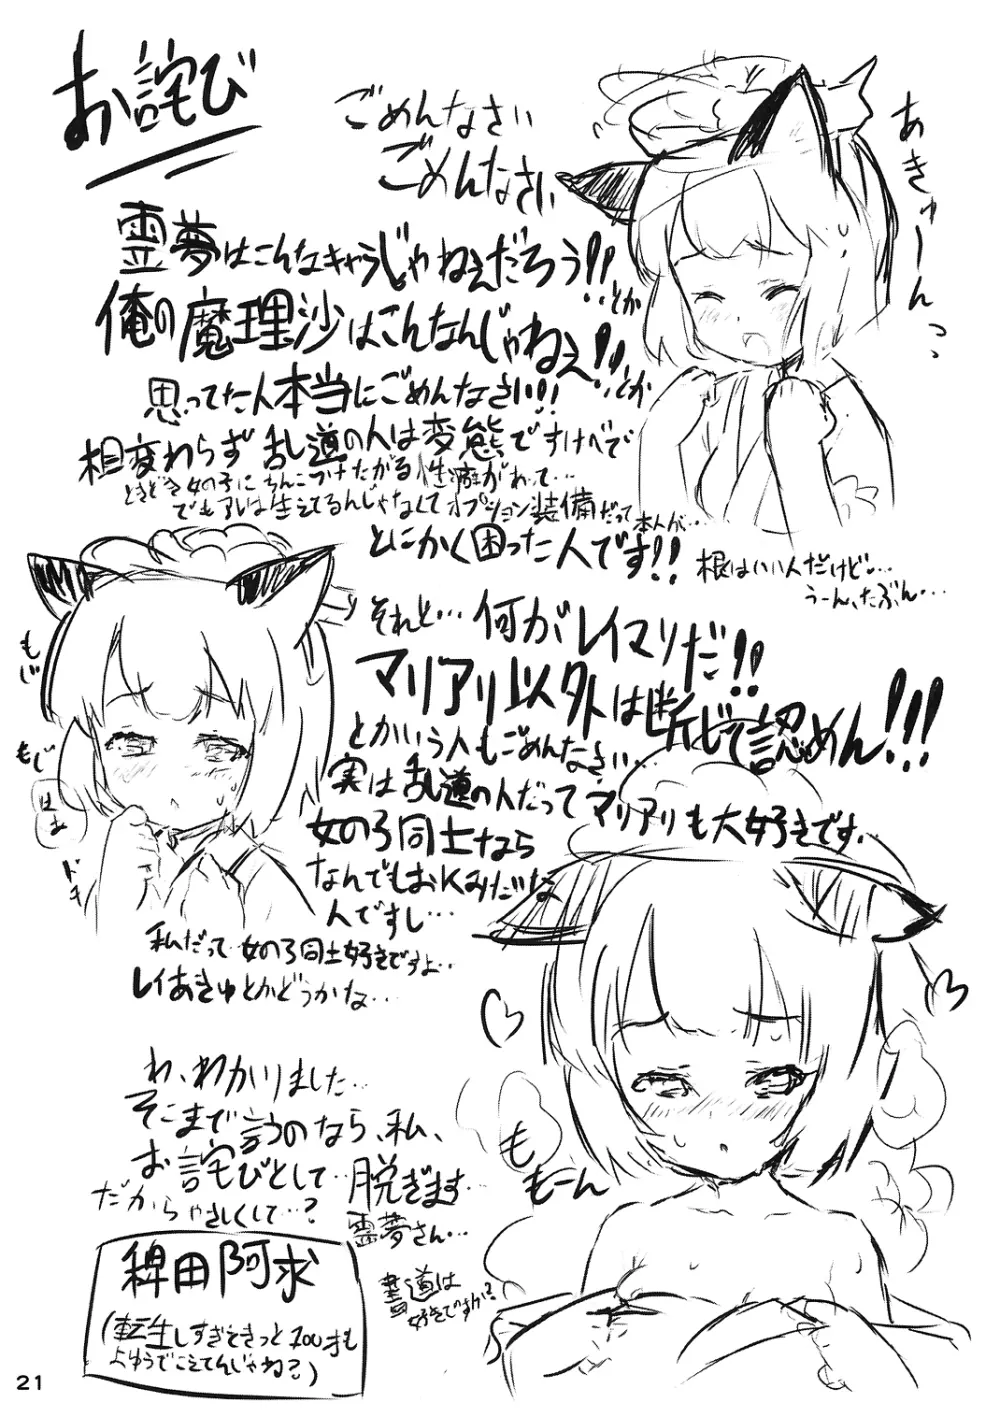 お詫び
ごめんなさい
ごめんなさい
あきゅーんっ
霊夢はこんなキャラじゃねぇだろう!!とか
俺の魔理沙はこんなんじゃねぇ!!とか
思ってた人本当にごめんなさい!!!
相変わらず乱道の人は変態ですけべで
ときどき女の子にちんこつけたがる性癖があって…
でもアレは生えてるんじゃなくてオプション装備だって本人が…
とにかく困った人です!!
根はいい人だけど…
うーん、たぶん…
もじ
もじ
はぁ
ドキ
それと…何がレイマリだ!!
マリアリ以外は断じて認めん!!!
とかいう人もごめんなさい…
実は乱道の人だってマリアリも大好きです.
女の子同士なら
なんでもおKみたいな
人ですし…
私だって女の子同士好きですよ…
レイあきゅとかどうかな…
わ、わかりました…
そこまで言うのなら、私、
お詫びとして…脱ぎます…
だからやさしくして…?
霊夢さん…
書道は
好きですか?
もも
もーん
稗田阿求
(転生しすぎてきっと200才も
よゆうでこえてんじゃね?)
21